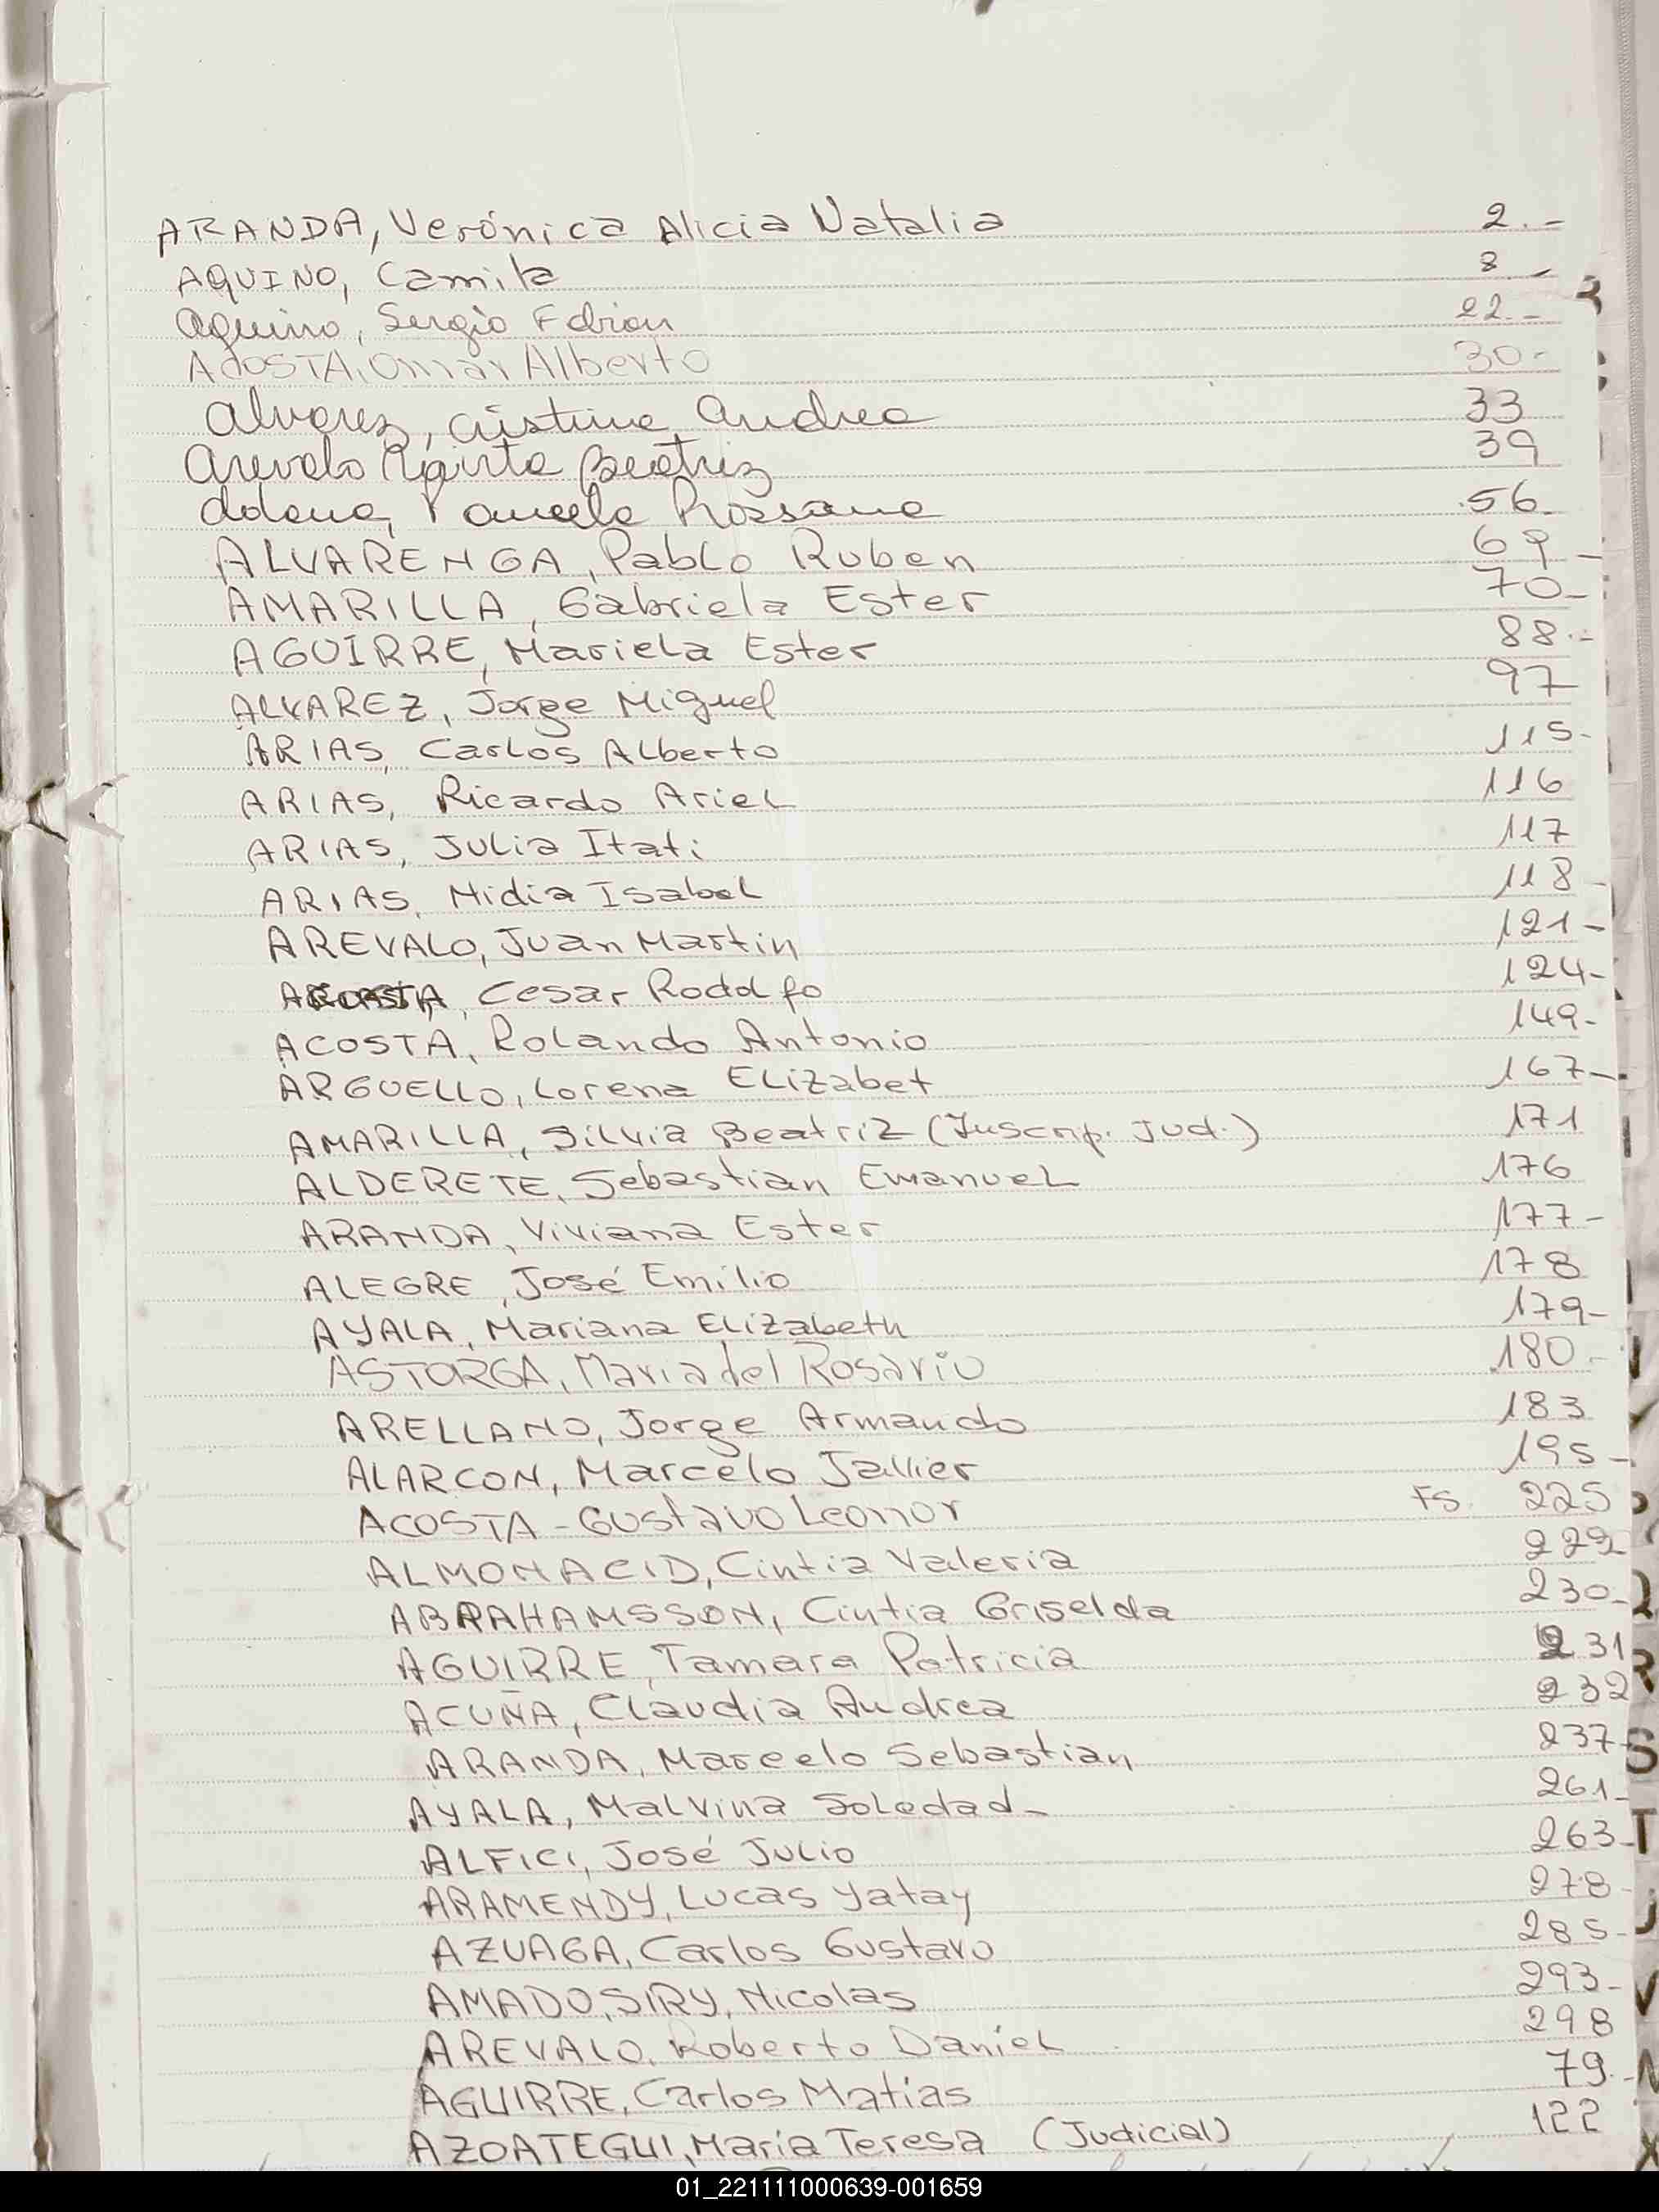 ARANDA, Verónica Alicia Natalia 2.-
AQUINO, Camila 8.-
Aquino, Sergio Fabian 22.-
ACOSTA, Omar Alberto 30-
Alvarez, Cristina Andrea 33
Arevalo Beatriz 39
Aldana, Pamela Rossana 56-
ALVARENGA, Pablo Ruben 69-
AMARILLA, Gabriela Ester 70-
AGUIRRE, Mariela Ester 88.-
ALVAREZ, Jorge Miguel 97
ARIAS, Carlos Alberto 115-
ARIAS, Ricardo Ariel 116
ARIAS, Julia Itati 117
ARIAS, Nidia Isabel 118-
AREVALO, Juan Martin 121-
ACOSTA, Cesar Rodolfo 124-
ACOSTA, Rolando Antonio 149-
ARGUELLO, Lorena Elizabet 167-
AMARILLA, Silvia Beatriz (Inscrip. Jud.) 171
ALDERETE, Sebastian Emanuel 176
ARANDA, Viviana Ester 177-
ALEGRE, José Emilio 178
AYALA, Mariana Elizabeth 179-
ASTORGA, Maria del Rosario 180-
ARELLANO, Jorge Armando 183
ALARCON, Marcelo Javier 195-
ACOSTA - Gustavo Leonor FS. 225
ALMONACID, Cintia Valeria 229
ABRAHAMSSON, Cintia Griselda 230-
AGUIRRE, Tamara Patricia 231
ACUÑA, Claudia Andrea 232
ARANDA, Marcelo Sebastian 237-
AYALA, Malvina Soledad- 261-
ALFICI, José Julio 263-
ARAMENDY, Lucas Yatay 278-
AZUAGA, Carlos Gustavo 285-
AMADO, SIRY, Nicolas 293-
AREVALO, Roberto Daniel 298
AGUIRRE, Carlos Matias 79.-
AZOATEGUI, Maria Teresa (Judicial) 122
01_221111000639-001659